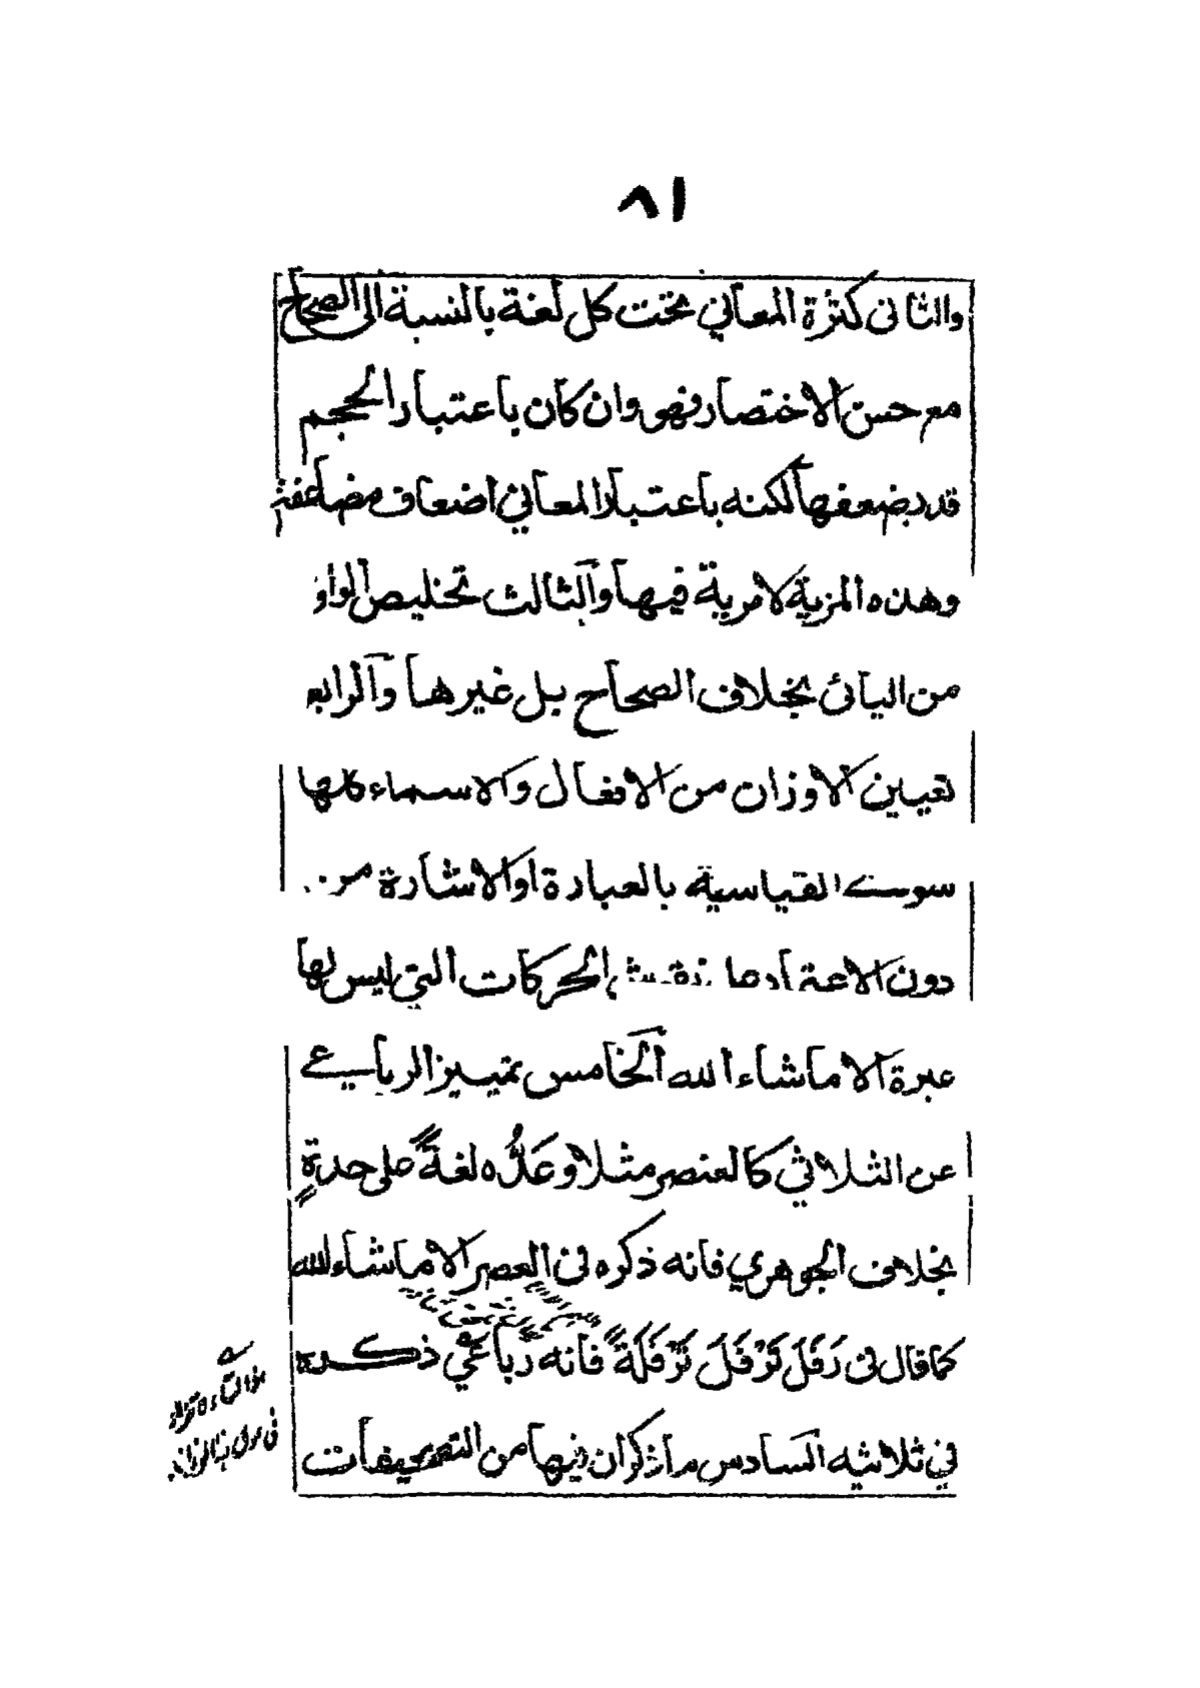 ٨١
والثانى كثرة المعاني تحت كل لغة بالنسبة الى الصحاح
مع حسن الاختصار فهو وان كان باعتبار الحجم
قدر ضعفها لكنه باعتبار المعاني اضعاف مضاعفة
وهذه المزية لامرية فيها والثالث تخليص الواو
من اليائى بخلاف الصحاح بل غيرها والرابع
تعيين الاوزان من الافعال والاسماء كلها
سوى القياسية بالعبارة اوالاشارة من
دون الاعتماد على نقش الحركات التي ليس لها
عبرة الا ماشاء الله الخامس تمييز الرباعي
عن الثلاثي كالعنصر مثلا وعَدُّه لغةً على حدةٍ
بخلاف الجوهري فانه ذكره فى العصر الا ماشاء الله
كما قال فى رَفَلَ تَرْفَلَ تَرْفَلَةً فانه رباعي ذكره
في ثلاثيه السادس ماذكران فيها من التصحيفات